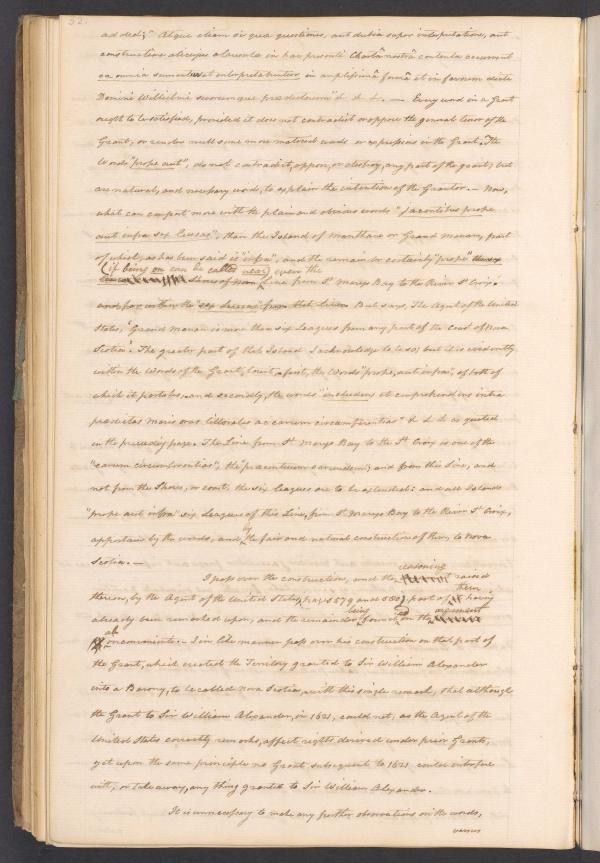 32.
ad dedi;" Atque etiam si quæ questiones, aut dubia super interpretatione, aut
constructione alicujus clausulæ in hac presenti Chartâ nostrâ contenta occurrunt
ea omnia sumentur et interpretabuntur in amplissimâ formâ et in favorem dicti
Domini Willielmi suorumque prædictorum" & & &. — Every word in a Grant
ought to be satisfied, provided it does not contradict or oppose the general tenor of the
Grant, or render null some more material words or expressions in the Grant. The
Words "prope aut", do not contradict, oppose, or destroy, any part of the grant; but
are natural, and necessary words, to explain the intention of the Grantor. — Now,
what can comport more with the plain and obvious words "jacentibus prope
aut infra sex leucas", than the Island of Manthane or Grand Manan, part
of which, as has been said is "infra", and the remainder certainly "prope"
(if being on can be called near) even the
Line from St Marys Bay to the River St Croix.
and far within the "sex leucas" from that line. But says, the Agent of the United
States, "Grand Manan is more than six Leagues from any part of the Coast of Nova
Scotia". The greater part of that Island I acknowledge to be so; but it is evidently
within the Words of the Grant, first, the Words "prope, aut infra", of both of
which it partakes, and secondly, the words "includens et comprehendens intra
prædictas maris oras littorales ac earum circumferentias" & & & as quoted
in the preceding page. The Line from St Marys Bay to the St Croix is one of the
"earum circumferentias", the præcinctuum surveidem; and from this Line, and
not from the Shores, or coast, the six leagues are to be extended: and all Islands
"prope aut infra" six Leagues of this Line, from St Marys Bay to the River St Croix,
appertain by the words, and by the fair and natural construction of them, to Nova
Scotia. —
I pass over the construction, and the reasoning raised
thereon, by the Agent of the United States, pages 579 and 580, part of them having
already been remarked upon, and the remainder being found on the argument
ab inconvenienti. — I in like manner pass over his construction on that part of
the Grant, which erected the Territory granted to Sir William Alexander
into a Barony, to be called Nova Scotia, with this single remark, that although
the Grant to Sir William Alexander, in 1621, could not, as the Agent of the
United States correctly remarks, affect rights derived under prior Grants,
yet upon the same principle no Grant subsequent to 1621 could interfere
with, or take away, any thing granted to Sir William Alexander.
It is unnecessary to make any further observations on the words,
versus